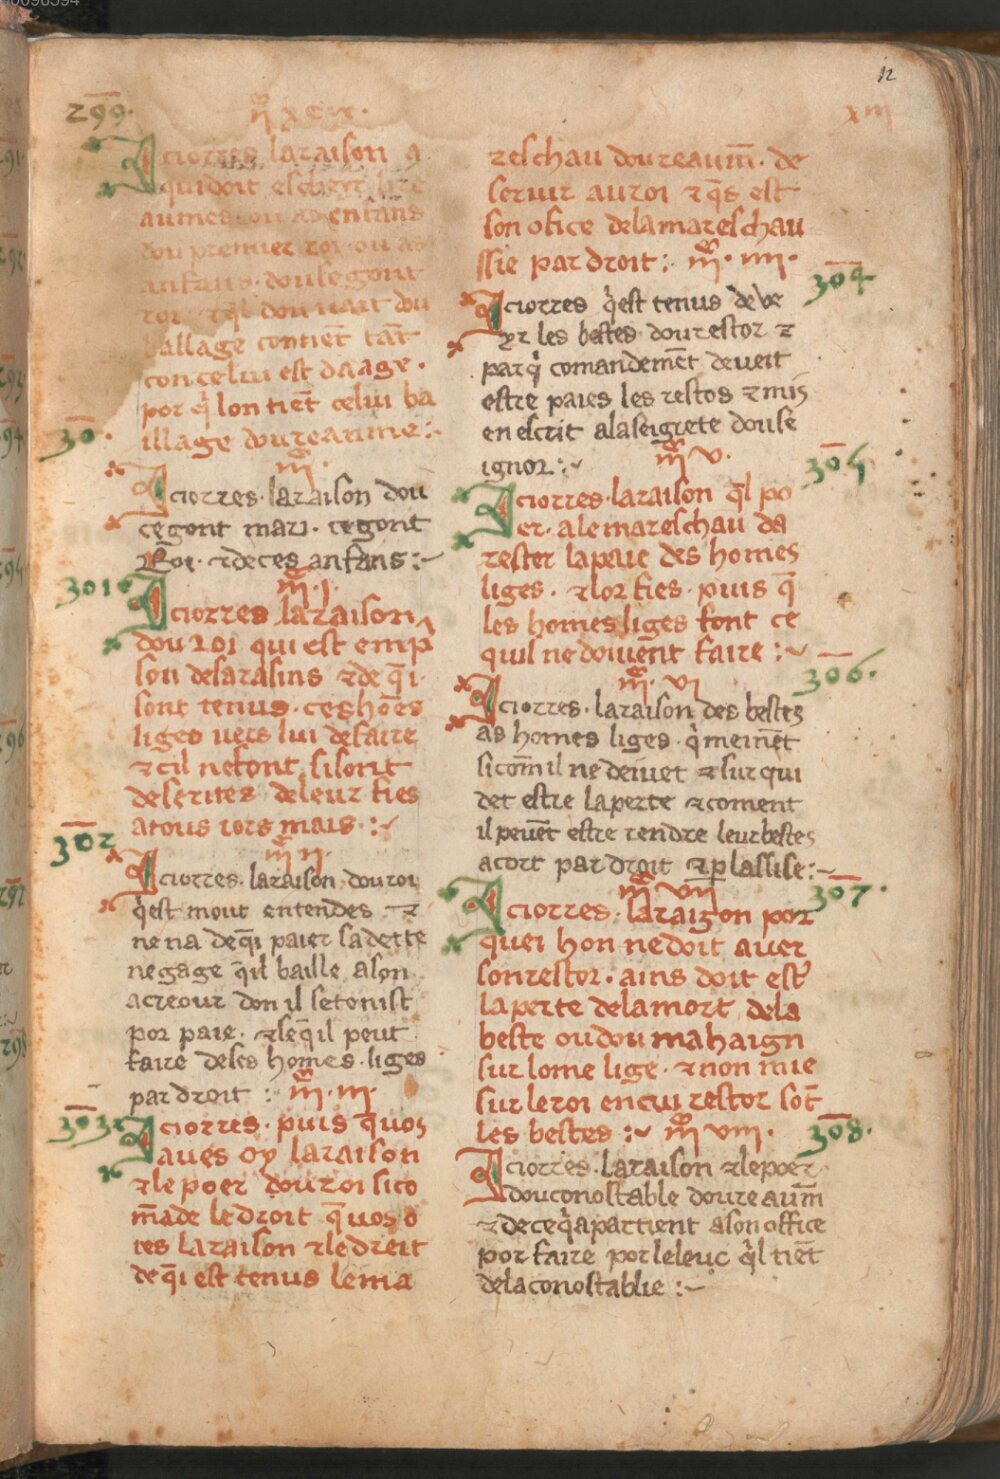 12
xiii
299.
Ici orres la raison a
qui doit escheyr
aumes ou as enfans
dou premier roi. ou as
anfans. dou segont
roi. dou
ballage contient̄ tāt
con celui est daage.
por q̍ lon tient̄ celui ba
illage dou reaume:
30 .
Iciorres. la raison dou
cegont mari. cegont
Roi. ⁊ de ces anfans:~
301
m̄. j.
Iciorres la raison
dou roi qui est emp̍
son de sarasins ⁊ de q̄i.
sont tenus. ces hōēs
liges uers lui de faire
⁊ cil ne font, si sont
deserites de leur fies
a tous iors mais :~
302
m̄ ii.
Iciorres. la raison. dou roi
q̍est mout entendes ⁊
ne na de q̄i paier sa dette
ne gage q̄ il baille a son
acreour don il se tenist
por paie. ⁊ se q̄ il peut
faire de ses homes. liges
par droit : m̄. iii.
303
Iciorres. puis q̄ uos
aues oy la raison
⁊ le poer dou roi si co
m̄ade le droit q̄ uos o
ies la raison ⁊ le dreit
de q̄i est tenus le ma
reschau dou reaum̄. de
seruir au roi ⁊ q̄s est
son ofice de la mareschau
ssie par droit : m̄. iiii.
304
Iciorres q̍est tenus de ve
yr les bestes. dou restor ⁊
par q̍ comandemēt deueit
estre paies les restos ⁊ mis
en escrit a la seigrete dou se
ignor :~ m̄ v.
305
Iciorres. la raison q̄l po
er. a le mareschau da
rester la paie des homes
liges. ⁊ lor fies. puis q̄
les homes liges font ce
quil ne doiuēnt faire :~
306.
m̄. vi
Iciorres. la raison des bestes
as homes liges. q̍ meinēt
si com̄ il ne deiuet ⁊ sur qui
det estre la perte ⁊ coment
il peuēt estre rendre leur bestes
a cort par droit ⁊ p̱ lassise :~
m̄ vii
307.
Iciorres. la raison por
quei hon ne doit auer
son restor. ains doit est̍
la perte de la mort de la
beste ou dou mahaign
sur lome lige. ⁊ non mie
sur le roi en cui restor sōt
les bestes :~ m̄ viii.
308.
Iciorres. la raison ⁊ le poer
dou conostable dou reaum̄
⁊ de ce q̍ apartient a son office
por faire por le leuc q̍l tient̄
de la conostablie :~